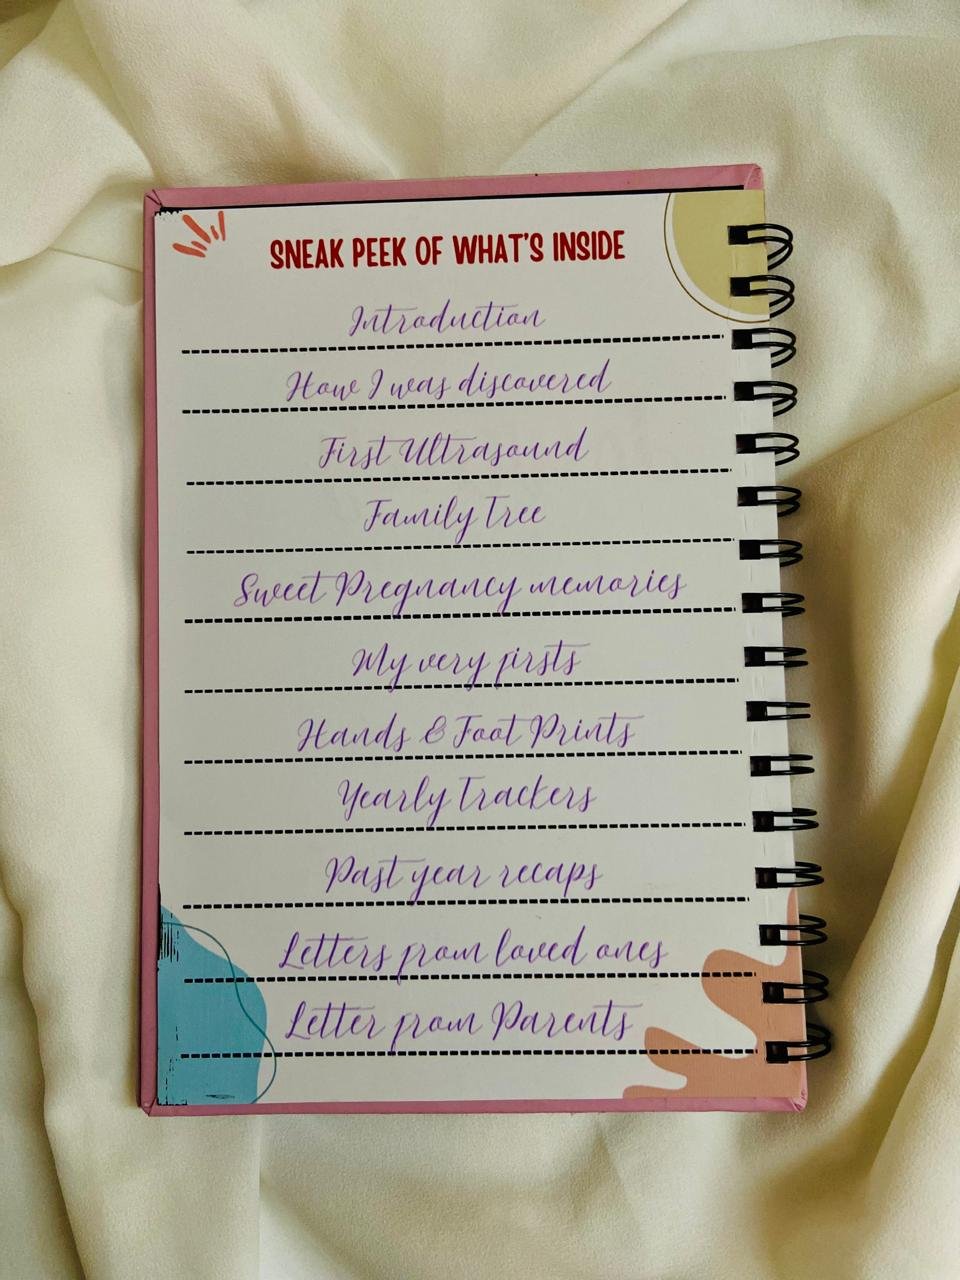 SNEAK PEEK OF WHAT'S INSIDE
Introduction
How I was discovered
First Ultrasound
Family Tree
Sweet Pregnancy memories
My very firsts
Hands & Foot Prints
Yearly Trackers
Past year recaps
Letters from loved ones
Letter from Parents